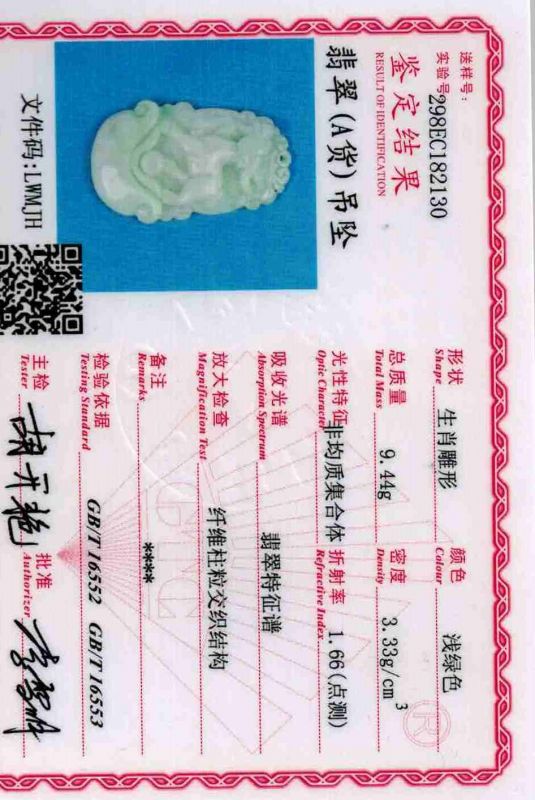 送样号:
实验号298EC182130
鉴定结果
RESULT OF IDENTIFICATION
翡翠(A货)吊坠
文件码:LWMJH
形状 生肖雕形 颜色 浅绿色
Shape Colour
总质量 9.44g 密度 3.33g/cm³
Total Mass Density
光性特征 非均质集合体 折射率 1.66(点测)
Optic Character Refractive Index
吸收光谱 翡翠特征谱
Absorption Spectrum
放大检查 纤维柱粒交织结构
Magnification Test
备注 ***
Remarks
检验依据 GB/T 16552 GB/T 16553
Testing Standard
主检 批准
Tester Authorizer
GTC
®